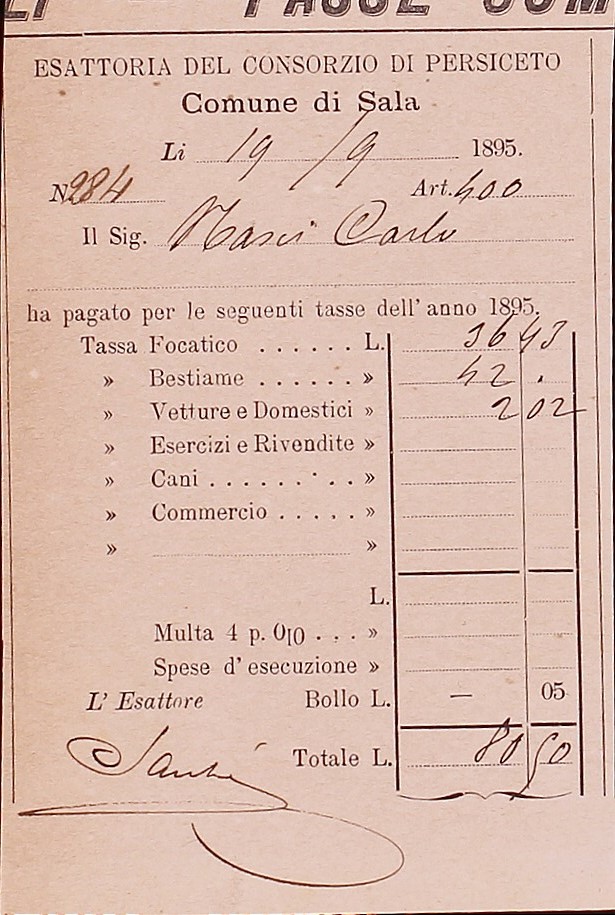 TASSE COM
ESATTORIA DEL CONSORZIO DI PERSICETO
Comune di Sala
Li 19/9 1895.
N. 284 Art. 400
Il Sig. Carlo
ha pagato per le seguenti tasse dell' anno 1895.
Tassa Focatico . . . . . . L. 36 43
» Bestiame . . . . . . » 42 .
» Vetture e Domestici » 2 02
» Esercizi e Rivendite »
» Cani . . . . . . . . . »
» Commercio . . . . . »
» »
L.
Multa 4 p. 0[0 . . . »
Spese d' esecuzione »
L' Esattore Bollo L. — 05
Totale L. 80 50